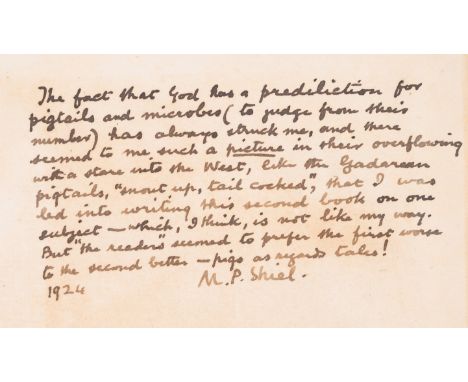 The fact that God has a prediliction for
pigtails and microbes (to judge from their
number) has always struck me, and there
seemed to me such a picture in their overflowing
with a stare into the West, like the Gadarean
pigtails, "snout up, tail cocked", that I was
led into writing this second book on one
subject — which, I think, is not like my way.
But "the readers" seemed to prefer the first worse
to the second better — pigs as regards tales!
1924 M. P. Shiel.